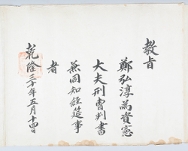 教旨
鄭弘淳為資憲
大夫刑曹判書
兼同知經筵事
者
乾隆三十年五月十四日